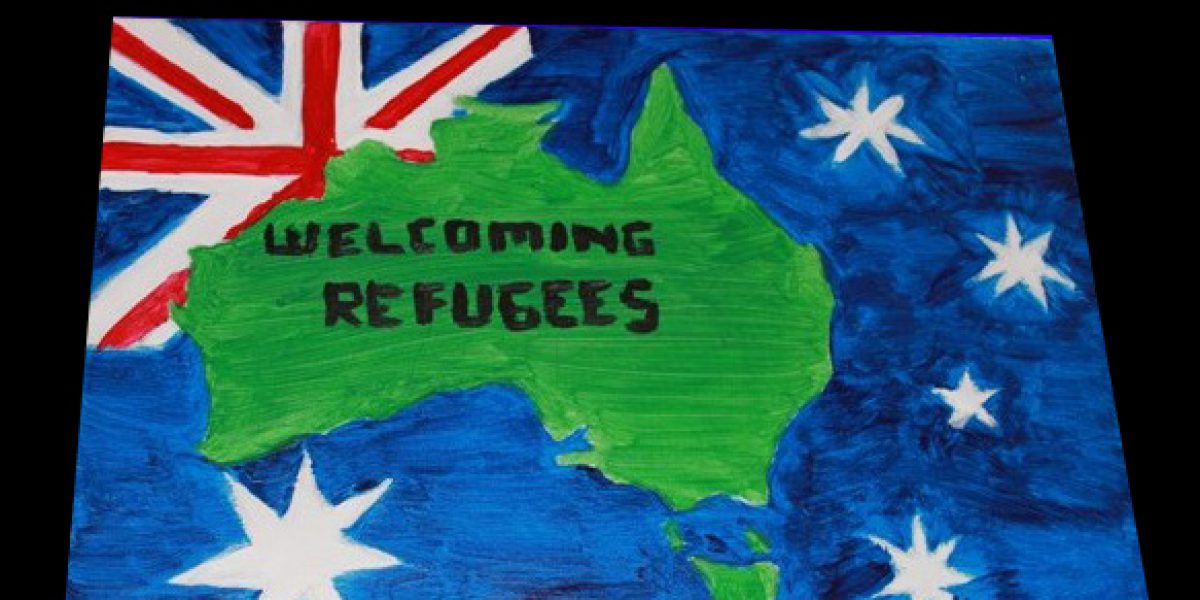 WELCOMING
REFUGEES